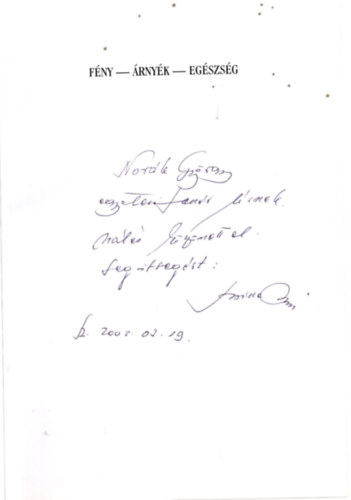 FÉNY — ÁRNYÉK — EGÉSZSÉG
Novák György
egyetemi tanár úrnak,
hálás köszönettel
segítségéért:
02. 19.